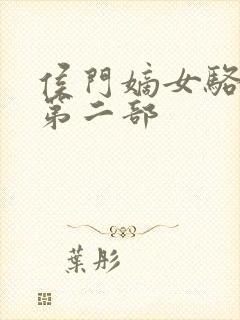 侯門嫡女駱
第二部
葉彤